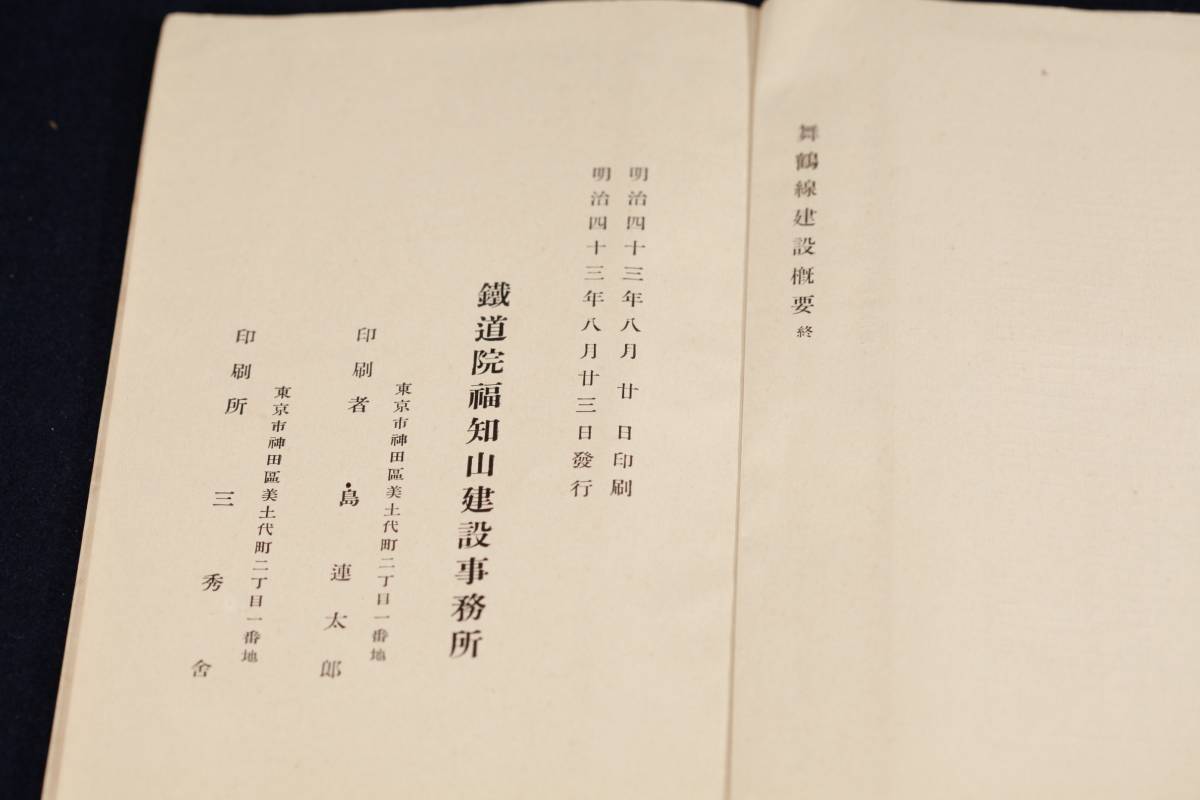 舞鶴線建設概要 終
明治四十三年八月廿日印刷
明治四十三年八月廿三日發行
鐵道院福知山建設事務所
東京市神田區美土代町二丁目一番地
印刷者 島連太郎
東京市神田區美土代町二丁目一番地
印刷所 三秀舍